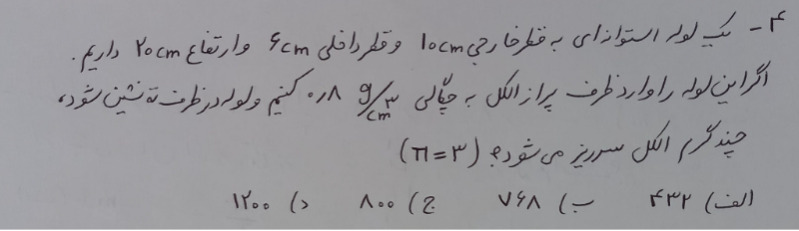 ۴- یک لوله استوانه‌ای به قطر خارجی ۱۰cm و قطر داخلی ۶cm و ارتفاع ۲۰cm داریم.
اگر این لوله را وارد ظرف پر از الکل به چگالی ۰٫۸ g/cm³ کنیم و لوله در ظرف ته نشین شود،
چند گرم الکل سرریز می شود؟ (π=۳)
الف) ۴۳۲ ب) ۷۶۸ ج) ۸۰۰ د) ۱۲۰۰